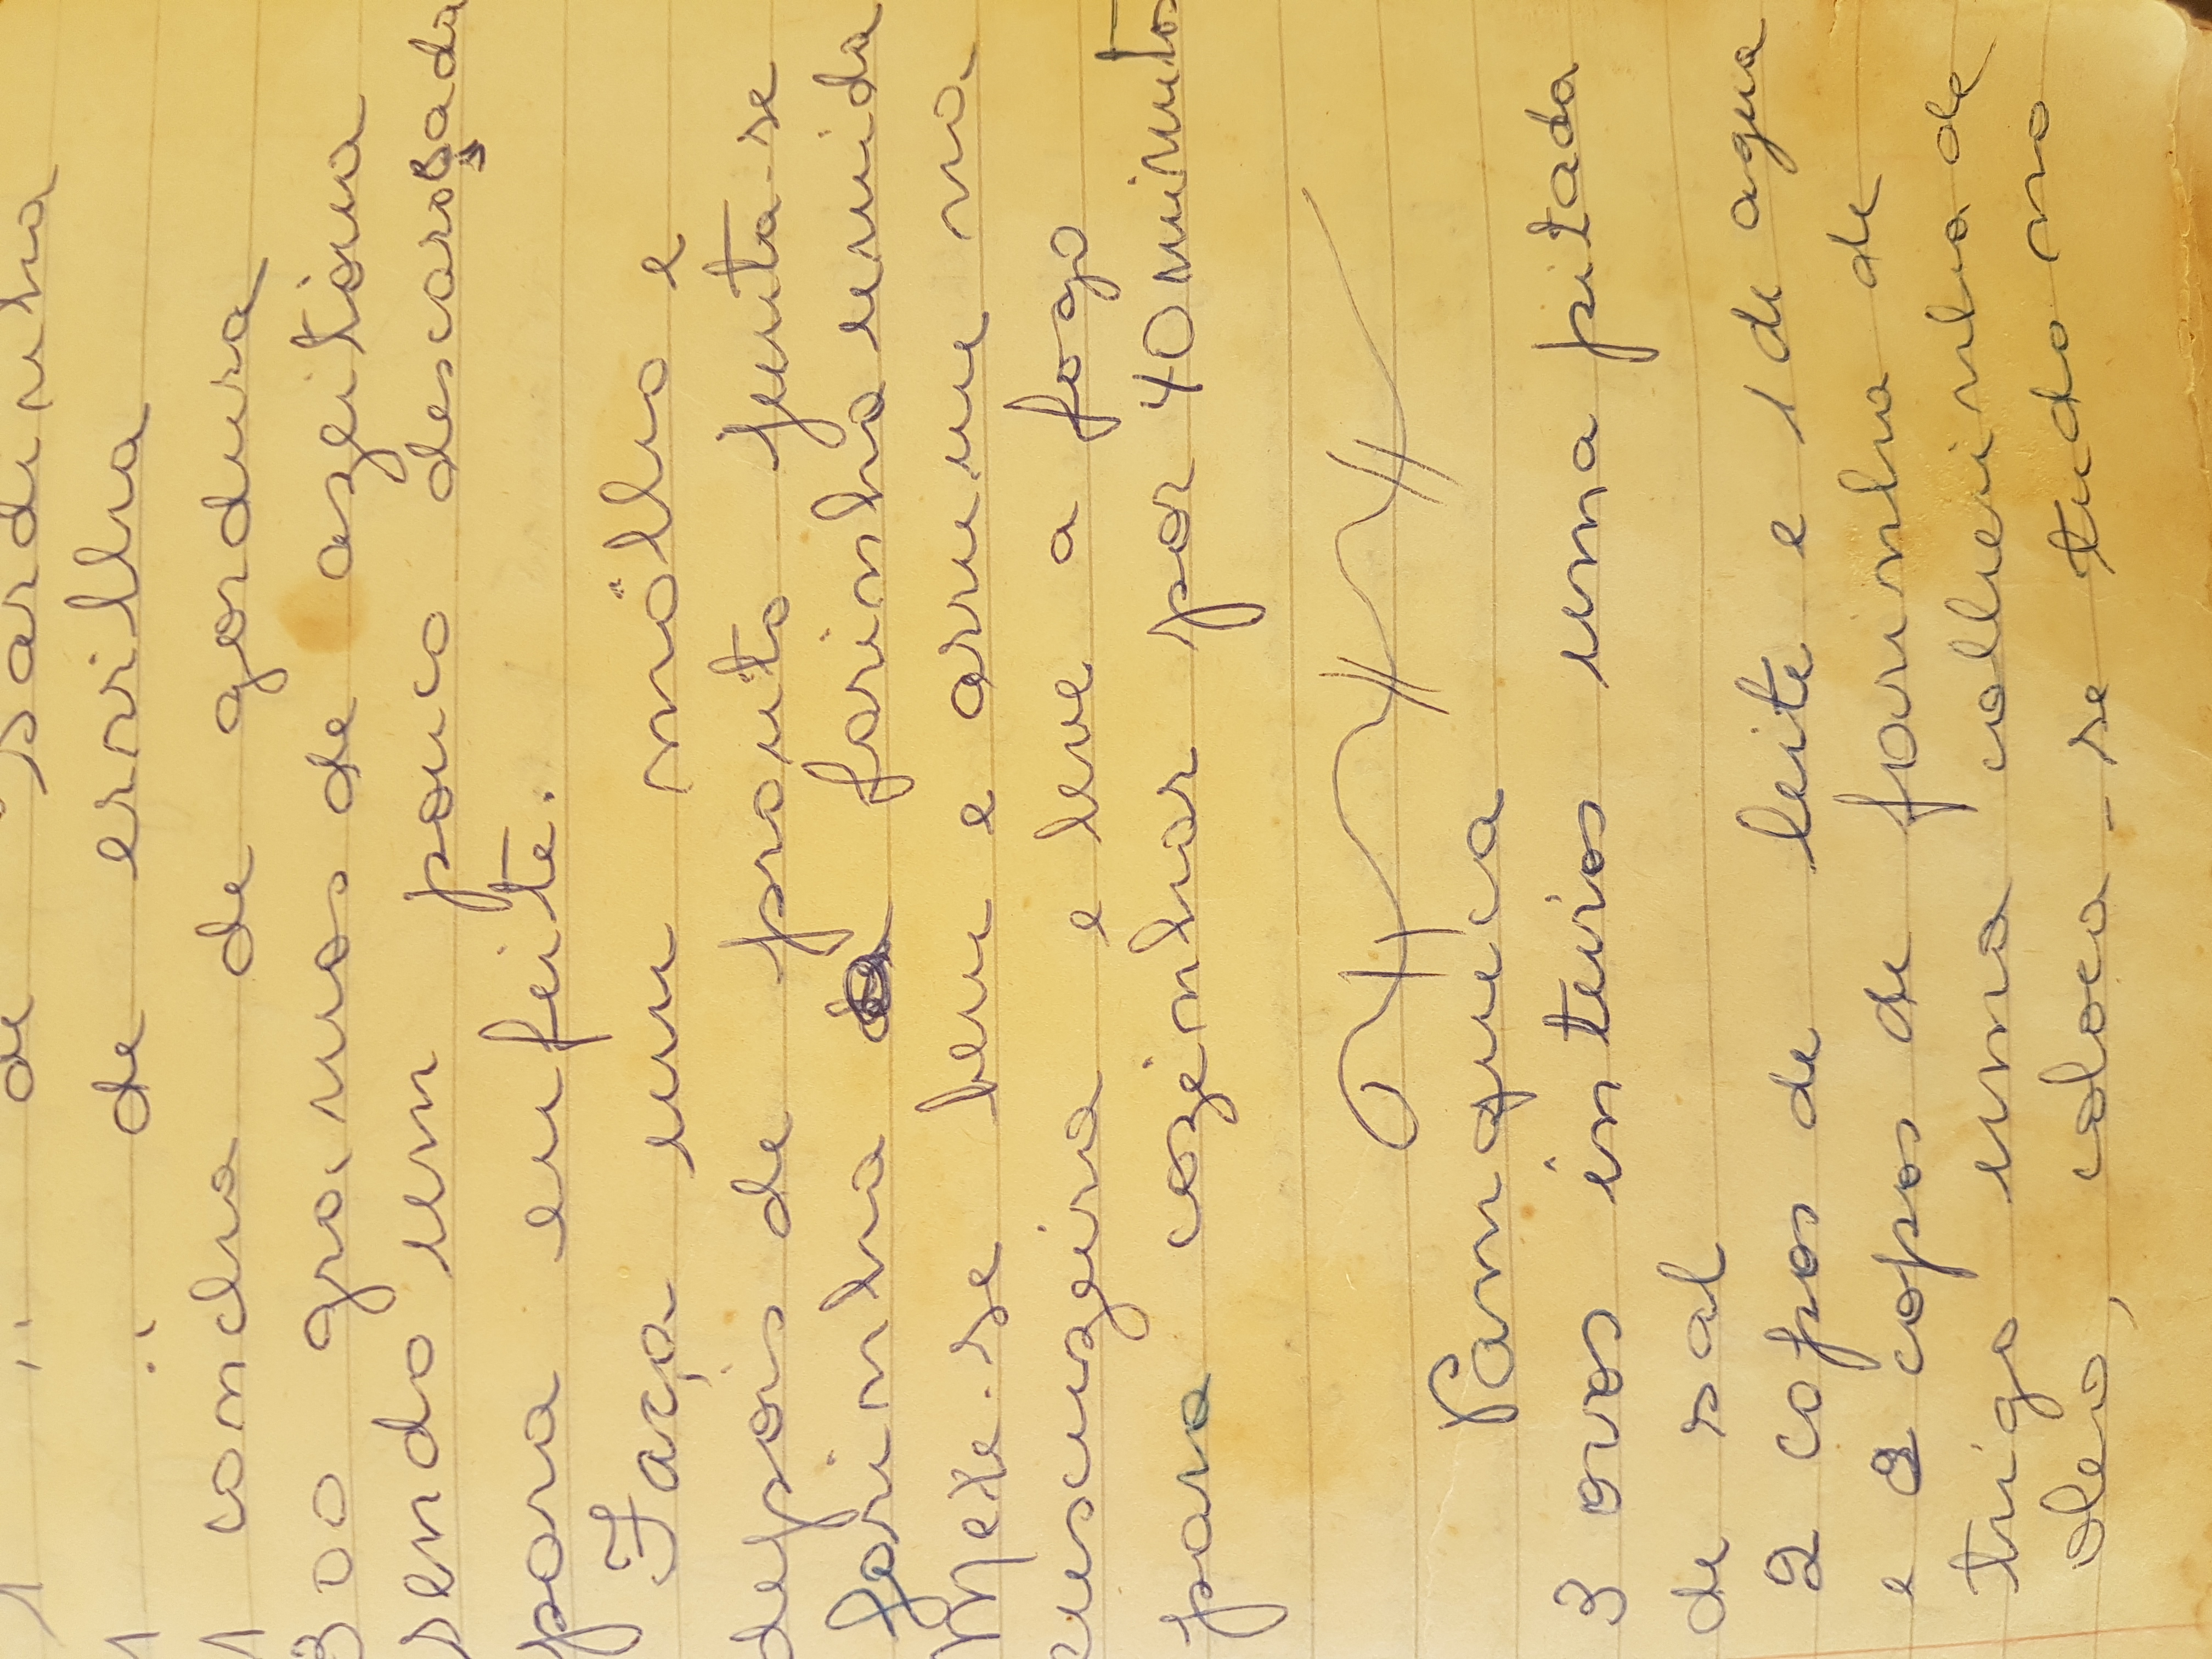 1 " de sardinha
1 " de ervilha
1 concha de gordura
300 gramas de azeitona
sendo um pouco descaroçada
para enfeite.
Faça um môlho e
depois de pronto junta-se
farinha farinha umida
Mexe-se bem e arrume na
cuscuzeira e leve a fogo
para cozinhar por 40 minutos
Pamqueca
3 ovos inteiros uma pitada
de sal
2 copos de leite e 1 de agua
e 2 copos de farinha de
trigo uma colherinha de
oleo, coloca-se tudo no